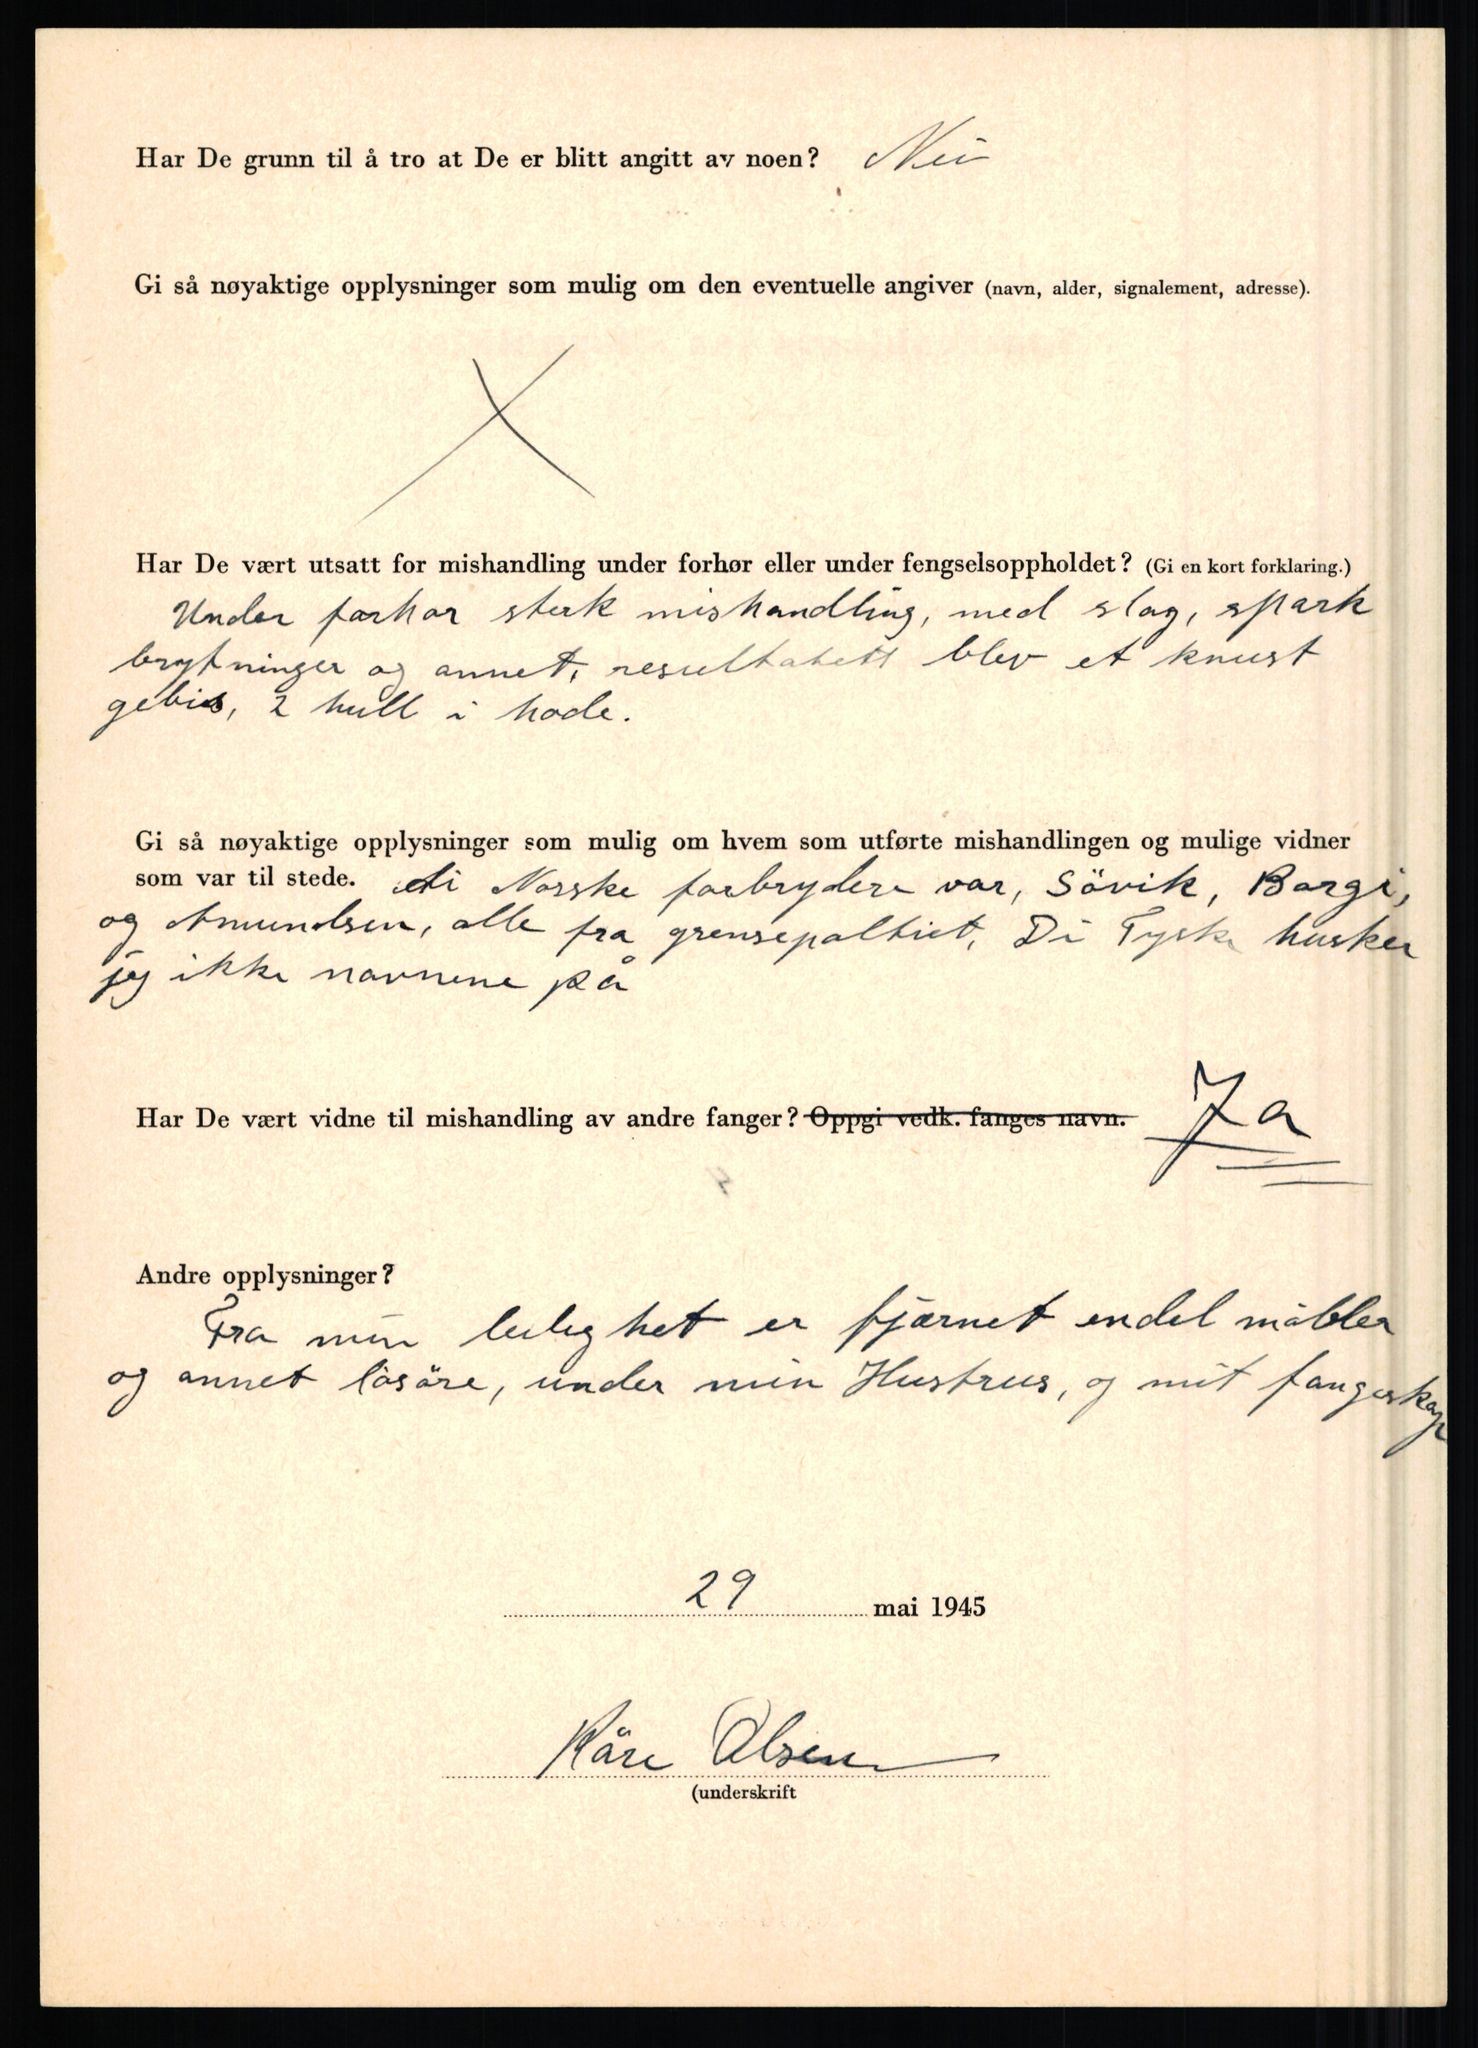 Har De grunn til å tro at De er blitt angitt av noen? Nei
Gi så nøyaktige opplysninger som mulig om den eventuelle angiver (navn, alder, signalement, adresse).
Har De vært utsatt for mishandling under forhør eller under fengselsoppholdet? (Gi en kort forklaring.)
Under forhør sterk mishandling, med slag, spark
brytninger og annet, resultatett blev et knust
gebis, 2 hull i hode.
Gi så nøyaktige opplysninger som mulig om hvem som utførte mishandlingen og mulige vidner
som var til stede. di Norske forbrydere var, Sövik, Borgi,
og Amundsen, alle fra grensepoltiet, Di Tyske husker
jeg ikke navnene på
Har De vært vidne til mishandling av andre fanger? Oppgi vedk. fanges navn. Ja
Andre opplysninger?
Fra min leilighet er fjærnet endel möbler
og annet lösöre, under min Hustrus, og mit fangeskap
29 mai 1945
Kåre Olsen
(underskrift